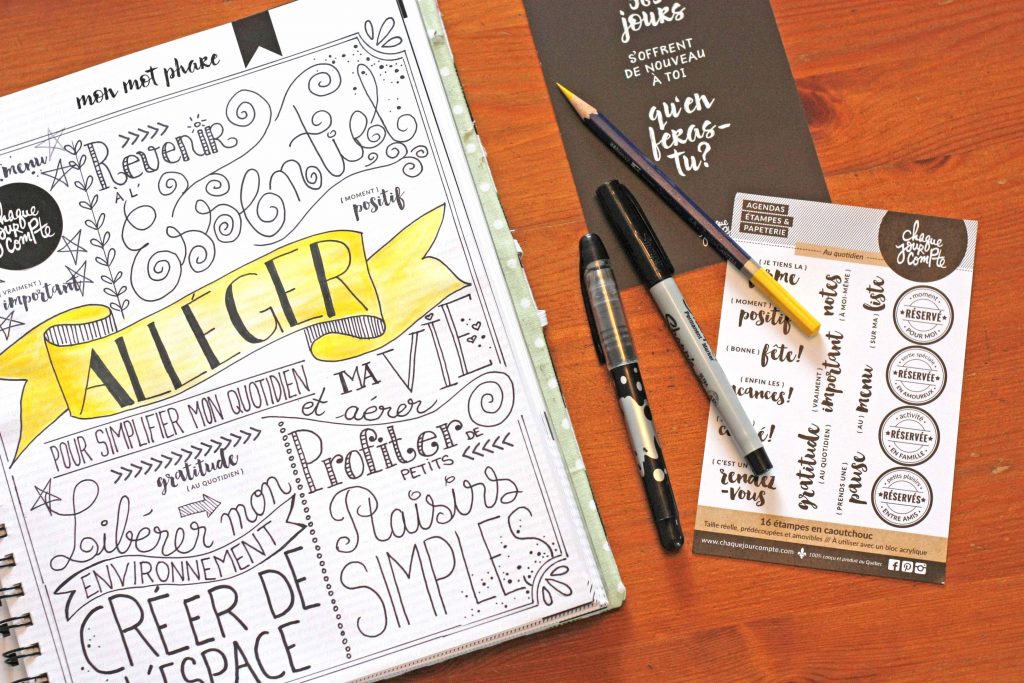 mon mot phare
menu
Revenir
à
l'Essentiel
chaque
jour
compte
( MOMENT )
positif
( VRAIMENT )
important
ALLÉGER
POUR SIMPLIFIER MON QUOTIDIEN
et
aérer
MA
VIE
gratitude
( AU QUOTIDIEN )
Libérer mon
ENVIRONNEMENT
CRÉER DE
L'ESPACE
Profiter DE
PETITS
Plaisirs
SIMPLES
365
jours
S'OFFRENT
DE NOUVEAU
À TOI
qu'en
feras-
tu?
Sharpie
Permanent Marker
AGENDAS
ÉTAMPES &
PAPETERIE
chaque
jour
compte
Au quotidien
( JE TIENS LA )
( MOMENT )
positif
( BONNE )
fête!
( ENFIN LES )
( C'EST UN )
rendez
-vous
notes
( À MOI-MÊME )
( VRAIMENT )
important
gratitude
( AU QUOTIDIEN )
( SUR MA )
liste
( AU )
menu
( PRENDS UNE )
pause
moment
RÉSERVÉ
POUR MOI
sortie spéciale
RÉSERVÉE
EN AMOUREUX
activité
RÉSERVÉE
EN FAMILLE
petits plaisirs
RÉSERVÉS
ENTRE AMIS
16 étampes en caoutchouc
Taille réelle, prédécoupées et amovibles // À utiliser avec un bloc acrylique
www.chaquejourcompte.com
100% conçu et produit au Québec